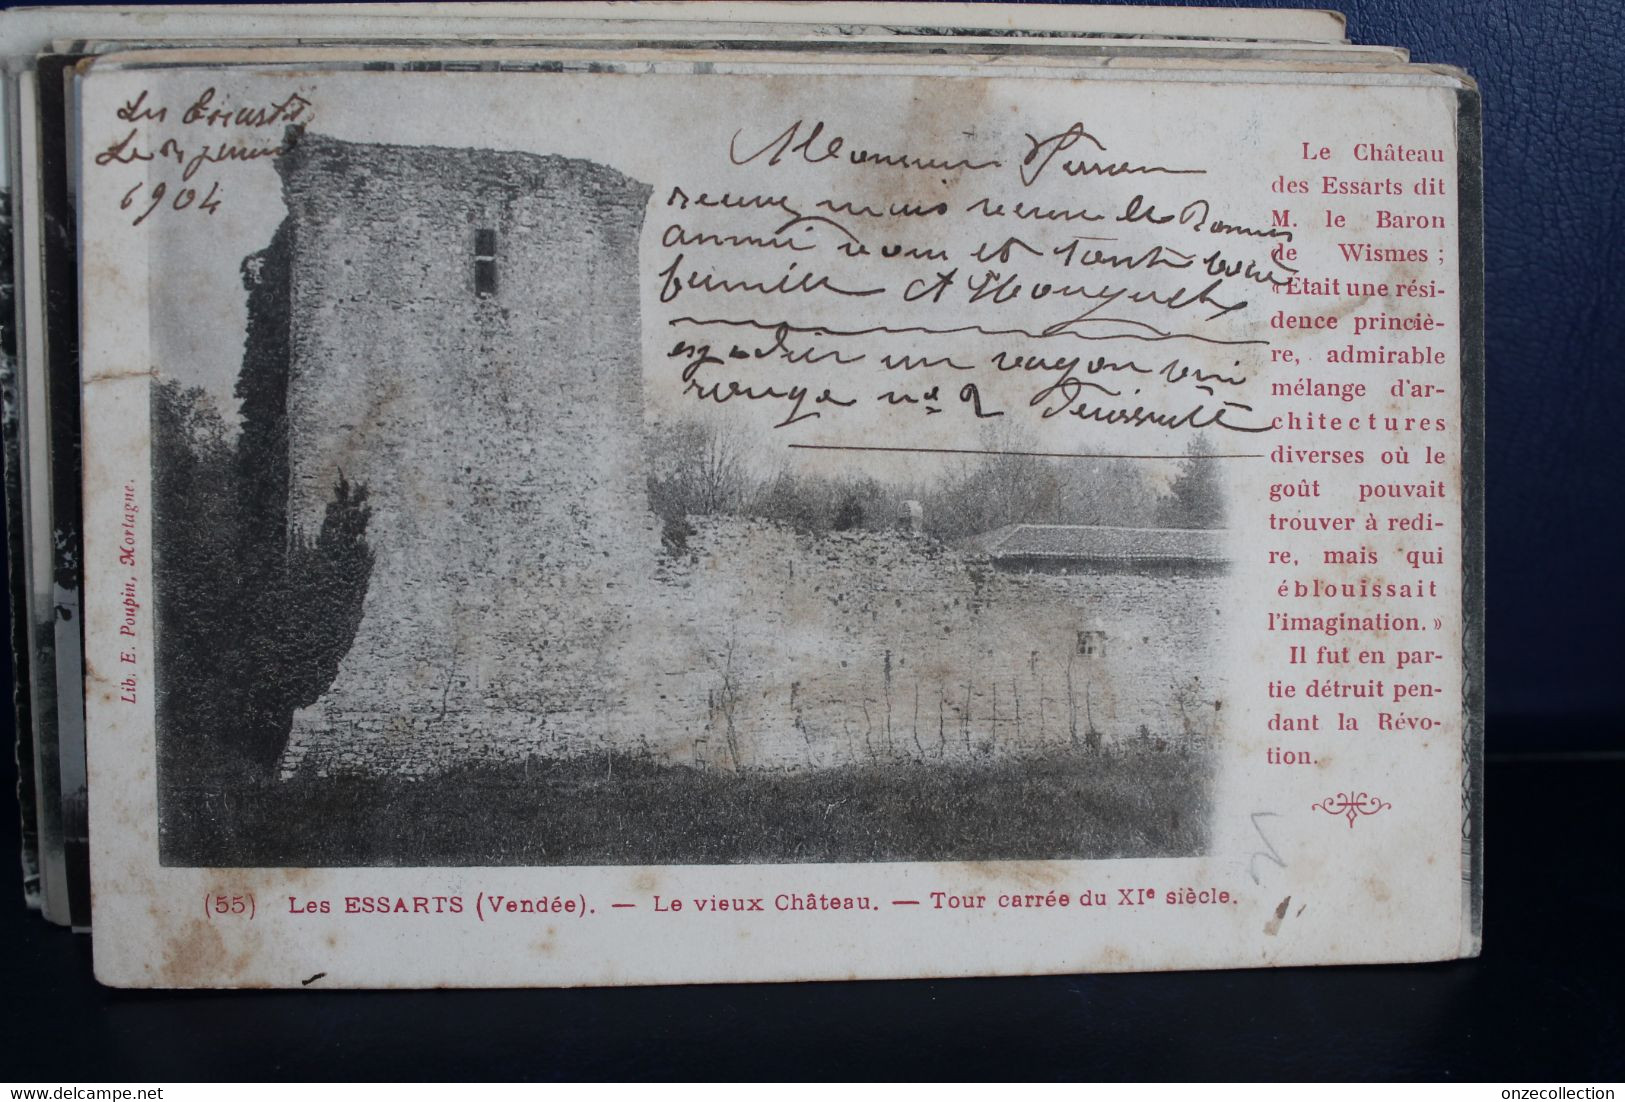 Le
1904
Monsieur
année vous et toute votre
famille A
expédier un wagon vin
rouge nº 2
Le Château
des Essarts dit
M. le Baron
de Wismes ;
« Etait une rési-
dence princiè-
re, admirable
mélange d'ar-
chitectures
diverses où le
goût pouvait
trouver à redi-
re, mais qui
éblouissait
l'imagination. »
Il fut en par-
tie détruit pen-
dant la Révo-
tion.
Lib. E. Poupin, Mortagne.
(55) Les ESSARTS (Vendée). — Le vieux Château. — Tour carrée du XIe siècle.
www.delcampe.net
onzecollection